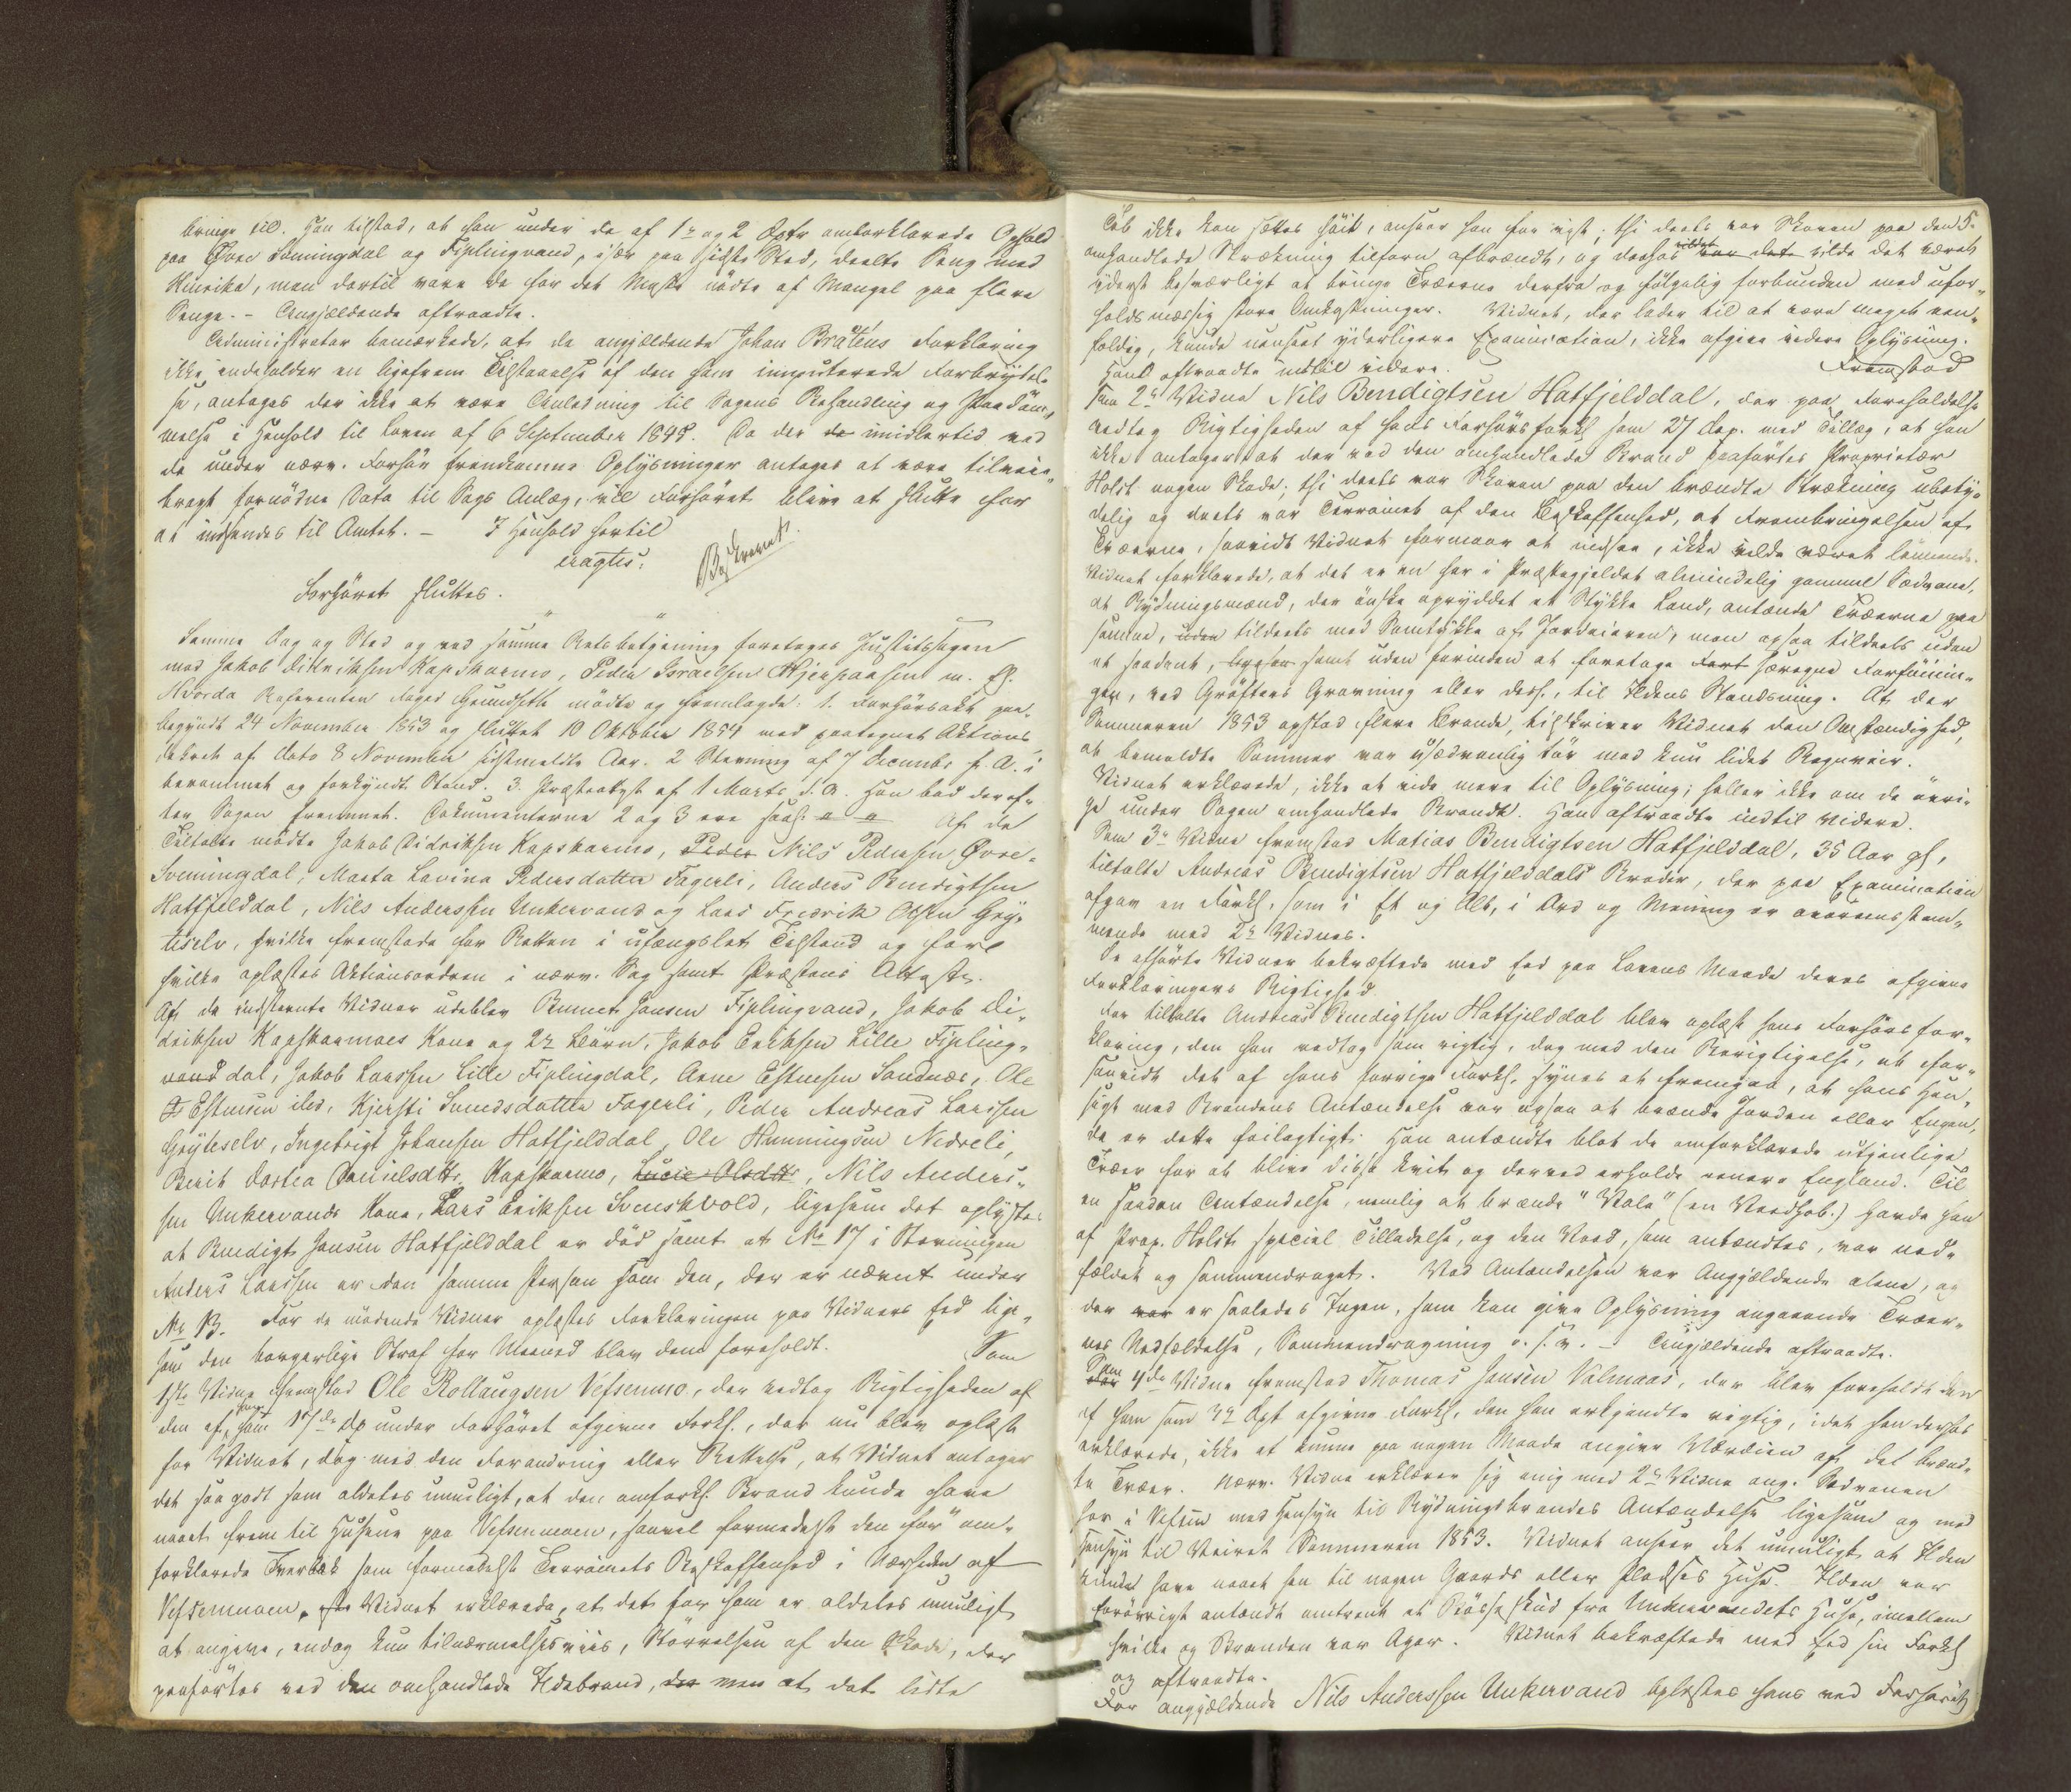 bringe til. Han tilstod, at han under de af 1ste og 2 Dptr omforklarede Ophold
paa Øvre Svenningdal og Fiplingvand, især paa sidste Sted, deelte Seng med
Hinrika, men dertil vare de for det Meste nödte af Mangel paa flere
Senge. - Angjældende aftraadte.
Administrator bemærkede, at da angjældende Johan Bråtens Forklaring
ikke indeholder en ligefrem Tilstaaelse af den ham imputerede Forbrydel-
se, antages der ikke at være Anledning til Sagens Behandling og Paadöm-
melse i Henhold til Loven af 6 September 1845. Da der de imidlertid ved
de under nærv. Forhör fremkomne Oplysninger antages at være tilveie-
bragt fornödne Data til Sags Anlæg, vil Forhöret blive at slutte for
at indsendes til Amtet. - I Henhold hertil
eragtes:
Beskrevet.
Forhöret sluttes.
Samme Dag og Sted og ved samme Retsbetjening foretoges Justitssagen
mod Jakob Didriksen Kapskarmo, Peder Israelsen Hjerpaasen m. fl.
Hvorda Referenten Foged Grundseth mödte og fremlagde: 1. Forhörsakt paa-
begyndt 24 November 1853 og sluttet 10 Oktober 1854 med paategnet Aktions-
dekret af dato 8 November sidstmeldte Aar. 2 Stevning af 7 December f. A. i
berammet og forkyndt Stand. 3. Præsteattest af 1 Marts d. A. Han bad deref-
ter Sagen fremmet. Dokumenterne 2 og 3 ere saal: " " Af de
Tiltalte mödte Jakob Didriksen Kapskarmo, Peder Nils Pedersen Övre-
Svenningdal, Marta Lavina Pedersdatter Fagerli, Anders Bendigtsen
Hatfjelddal, Nils Anderssen Unkervand og Lars Fredrik Olsen Gry-
teselv, hvilke fremstode for Retten i ufængslet Tilstand og for
hvilke oplæstes Aktionsordren i nærv. Sag samt Præstens Attester.
Af de indstevnte Vidner udeblev Bennet Jansen Fiplingvand, Jakob Di-
driksen Kapskarmoes Kone og 2de Börn, Jakob Eriksen Lille Fipling-
vand dal, Jakob Larssen Lille Fiplingdal, Arne Estensen Sandnæs, Ole
Estensen ibid., Kjersti Svendsdatter Fagerli, Peder Andreas Larssen
Gryteselv, Ingebrigt Johansen Hatfjelddal, Ole Henningsen Nedreli,
Berit Dortea Danielsdttr Kapskarmo, Lucie Olsdtt, Nils Anders-
sen Unkervands Kone, Lars Eriksen Svenskvold, ligesom det oplystes
at Bendigt Jansen Hatfjelddal er död samt at No 17 i Stevningen
Anders Larssen er den samme Person som den, der er nævnt under
No 13. For de mödende Vidner oplæstes Forklaringen paa Vidners Eed lige-
som den borgerlige Straf for Meened blev dem foreholdt. Som
1ste Vidne fremstod Ole Rollaugsen Vefsenmo, der vedtog Rigtigheden af
den af ham som 17de Dp under Forhöret afgivne Forkl., der nu blev oplæst
for Vidnet, dog med den Forandring eller Rettelse, at Vidnet antager
det saa godt som aldeles umuligt, at den omforkl. Brand kunde have
naaet frem til Husene paa Vefsenmoen, saavel formedelst den för om-
forklarede Tverbæk som formedelst Terrainets Beskaffenhed i Nærheden af
Vefsenmoen, Vidnet erklærede, at det for ham er aldeles umuligt
at angive, endog kun tilnærmelsesviis, Störrelsen af den Skade, der
paaförtes ved den omhandlede Ildebrand, der men at det lidte
5.
Tab ikke kan sættes höit, anseer han for vist; thi deels var Skoven paa den
omhandlede Strækning tilforn afbrændt, og deshos vilde det været
yderst besværligt at bringe Træerne derfra og fölgelig forbunden med ufor-
holdsmæssig store Omkostninger. Vidnet, der lader til at være meget een-
foldig, kunde uanseet yderligere Examination, ikke afgive videre Oplysning.
Hand aftraadte indtil videre. Fremstod
som 2det Vidne Nils Bendigtsen Hatfjelddal, der paa Foreholdelse
vedtog Rigtigheden af hans Forhörsforkl som 27 Dep. med Tillæg, at han
ikke antager at der ved den omhandlede Brand paaförtes Proprietær
Holst nogen Skade; thi deels var Skoven paa den brændte Strækning ubety-
delig og deels var Terrainet af den Beskaffenhed, at Frembringelsen af
Træerne, saavidt Vidnet formaar at indsee, ikke vilde været lönnende.
Vidnet forklarede, at det er en her i Præstegjeldet almindelig gammel Sædvane,
at Rydningsmænd, der önske opryddet et Stykke Land, antænde Træerne paa
samme, uden tildeels med Samtykke af Jordeieren, men ogsaa tildeels uden
et saadant, samt uden forinden at foretage særegne Forföinin-
ger, ved Gröfters Gravning eller desl., til Ildens Standsning. At der
Sommeren 1853 opstod flere Brande, tilskriver Vidnet den Omstændighed,
at bemeldte Sommer var usædvanlig tör med kun lidet Regnveir.
Vidnet erklærede, ikke at vide mere til Oplysning; heller ikke om de övri-
ge under Sagen omhandlede Brande. Han aftraadte indtil Videre.
Som 3die Vidne fremstod Matias Bendigtsen Hatfjelddal, 35 Aar gl,
tiltalte Andreas Bendigtsen Hatfjelddals Broder, der paa Examination
afgav en Forkl. som i Et og Alt, i Ord og Mening er overeensstem-
mende med 2det Vidnes.
De afhörte Vidner bekræftede med Eed paa Lovens Maade deres afgivne
Forklaringers Rigtighed.
For tiltalte Andreas Bendigtsen Hatfjelddal blev oplæst hans Forhörsfor-
klaring, den han vedtog som rigtig, dog med den Berigtigelse, at for-
saavidt det af hans forrige Forkl. synes at fremgaa, at hans Hen-
sigt med Brandens Antændelse var ogsaa at brænde Jorden eller Engen,
da er dette feilagtigt. Han antændte blot de omforklarede utjenlige
Træer for at blive disse kvit og derved erholde renere England. Til
en saadan Antændelse, nemlig at brænde "Vale" (en Vedhob.) havde han
af Prop. Holst speciel Tilladelse, og den Veed, som antændtes, var ned-
fældet og sammendraget. Ved Antændelsen var Angjældende alene, og
der var er saaledes Ingen, som kan give Oplysning angaaende Træer-
nes Nedfældelse, Sammendragning o. s. v. - Angjældende aftraadte.
Som 4de Vidne fremstod Thomas Jansen Valmaas, der blev foreholdt den
af ham som 3die Dpt afgivne Forkl, den han erkjendte rigtig, idet han derhos
erklærede, ikke at kunne paa nogen Maade angive Værdien af det brænd-
te Træer. Nærv. Vidne erklærer sig enig med 2det Vidne ang. Sædvanen
her i Vefsen med Hensyn til Rydningsbrandes Antændelse ligesom og med
Hensyn til Veiret Sommeren 1853. Vidnet anseer det umuligt at Ilden
kunde have naaet hen til nogen Gaards eller Pladses Huse. Ilden var
forövrigt antændt omtrent et Bösseskud fra Unkervandets Huse, imellem
hvilke og Branden var Ager. Vidnet bekræftede med Eed sin Forkl
og aftraadte.
For angjældende Nils Anderssen Unkervand oplæstes hans ved Forhöret